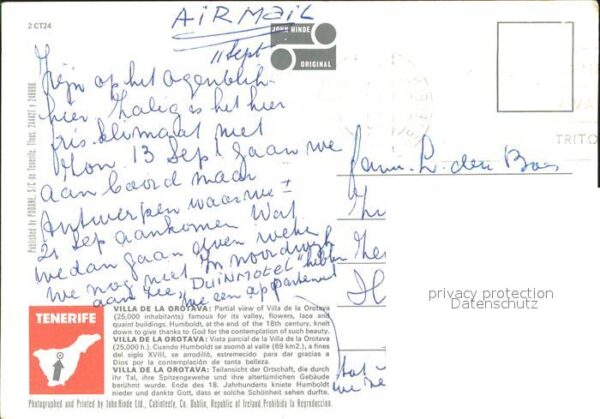 2 CT24
AIRMAIL
JOHN HINDE
ORIGINAL
11 Sept
Zijn op het ogenblik
hier. Zalig is het hier
klimaat met
Hon. 13 Sept gaan we
aan boord naar
Antwerpen waar we ±
21 Sep aankomen Wat
we dan gaan doen weten
we nog niet. In Noordwijk
aan Zee, "DUINMOTEL" hebben
we een appartement
Fam. L. den Boer
TRITO
privacy protection
Datenschutz
Published by PADANE, S/C de Tenerife. Tfnos.
TENERIFE
VILLA DE LA OROTAVA: Partial view of Villa de la Orotava
(25,000 inhabitants) famous for its valley, flowers, lace and
quaint buildings. Humboldt, at the end of the 18th century, knelt
down to give thanks to God for the contemplation of such beauty.
VILLA DE LA OROTAVA: Vista parcial de la Villa de la Orotava
(25,000 h.). Cuando Humboldt se asomó al valle (69 km2.), a fines
del siglo XVIII, se arrodilló, estremecido para dar gracias a
Dios por la contemplación de tanta belleza.
VILLA DE LA OROTAVA: Teilansicht der Ortschaft, die durch
ihr Tal, ihre Spitzengewebe und ihre altertümlichen Gebäude
berühmt wurde. Ende des 18. Jahrhunderts kniete Humboldt
nieder und dankte Gott, dass er solche Schönheit sehen durfte.
Photographed and Printed by John Hinde Ltd., Cabinteely, Co. Dublin, Republic of Ireland. Prohibida la Reproduccion.